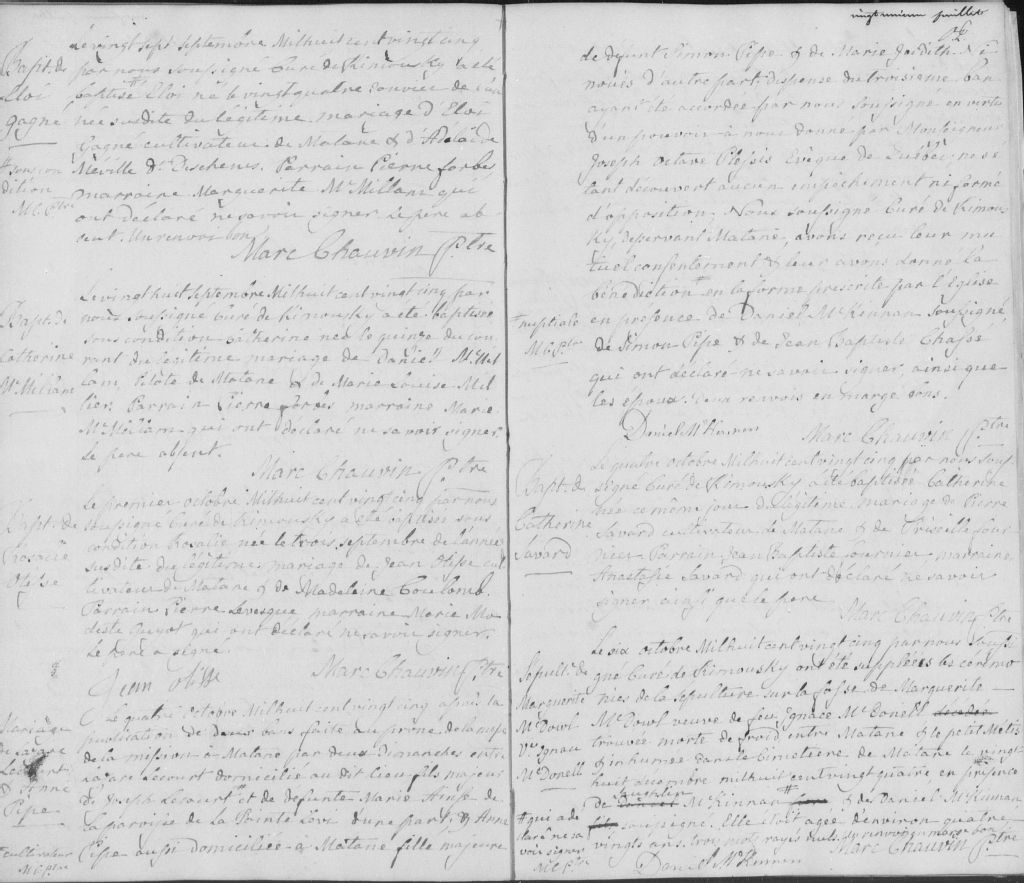 Le vingt sept septembre Mil huit cent vingt cinq
par nous soussigné Curé de Rimousky a été
baptisé Eloi né le vingt quatre
née susdite du légitime mariage d'Eloi
Gagné cultivateur de Matane & d'Adelaide
Parrain Pierre forbes
marraine Marguerite McMillan qui
ont declaré ne savoir signer. Le père ab
sent. Un renvoi bon
Marc Chauvin Ptre
Bapt. de
Eloi
gagné
sous con
dition
M.C. Ptre
Le vingt huit septembre Mil huit cent vingt cinq par
nous soussigné Curé de Rimousky a été baptisée
sous condition Catherine née le quinze du cou
rant du légitime mariage de Daniel
Pilote de Matane & de Marie Louise Mil
lier. Parrain Pierre forbes marraine Marie
qui ont declaré ne savoir signer
Le père absent.
Marc Chauvin Ptre
Bapt. de
Catherine
Le premier octobre Mil huit cent vingt cinq par nous
soussigné Curé de Rimousky a été baptisée sous
condition Rosalie née le trois septembre de l'année
susdite du légitime mariage de Jean cul
tivateur de Matane & de Madeleine Coulomb.
Parrain Pierre Levesque marraine Marie Mo
deste Guyot qui ont declaré ne savoir signer.
Le père a signé.
Marc Chauvin Ptre
Jean
Bapt. de
Rosalie
Le quatre octobre Mil huit cent vingt cinq après la
publication de Deux bans faite au prône de la messe
de la mission à Matane par deux Dimanches entre
Lazare Lecourt domicilié au dit lieu fils majeur
de Joseph Lecourt # et de defunte Marie de
la paroisse de la Pointe Levi d'une part; & Anne
Pipe aussi domiciliée à Matane fille majeure
Mariage
de Lazare
Lecourt
& Anne
Pipe
cultivateur
M.C. Ptre
vingt neuvieme feuillet
de defunt Simon Pipe & de Marie Judith
d'autre part: dispense du troisieme ban
ayant été accordée par nous soussigné en vertu
d'un pouvoir à nous donné par Monseigneur
Joseph Octave Plessis Evêque de Québec; ne s'é
tant découvert aucun empêchement ni formé
d'opposition; Nous soussigné Curé de Rimou
sky, desservant Matane, avons reçu leur mu
tuel consentement & leur avons donné la
bénédiction # en la forme prescrite par l'Eglise
en presence de Daniel McKinnan soussigné,
de Simon Pipe & de Jean Baptiste
qui ont declaré ne savoir signer, ainsi que
les epoux. Deux renvois en marge bons.
# nuptiale
M.C. Ptre
Daniel McKinnon
Marc Chauvin Ptre
Le quatre octobre Mil huit cent vingt cinq par nous sous
signé Curé de Rimousky a été baptisée Catherine
née ce même jour du légitime mariage de Pierre
Savard cultivateur de Matane & de Priscille Four
nier. Parrain Jean Baptiste Fournier marraine
Anastasie Savard qui ont declaré ne savoir
signer ainsi que le pere
Marc Chauvin Ptre
Bapt. de
Catherine
Savard
Le six octobre Mil huit cent vingt cinq par nous soussi
gné Curé de Rimousky ont été supplées les cérémo
nies de la sepulture sur la fosse de Marguerite
McDowl veuve de feu Ignace McDonell
trouvée morte de froid entre Matane & le petit Métis
& inhumée dans le Cimetiere de Matane le vingt
huit decembre mil huit cent vingt quatre, en presence
de McKinnan # & de Daniel McKinnan
soussigné. Elle étoit agée d'environ quatre
vingts ans. trois mots rayés nuls. Un renvoi en marge bon
Daniel McKinnon
Marc Chauvin Ptre
Sepult. de
Marguerite
McDowl
Ve Ignace
McDonell
# qui a de
claré ne sa
voir signer
M.C. Ptre